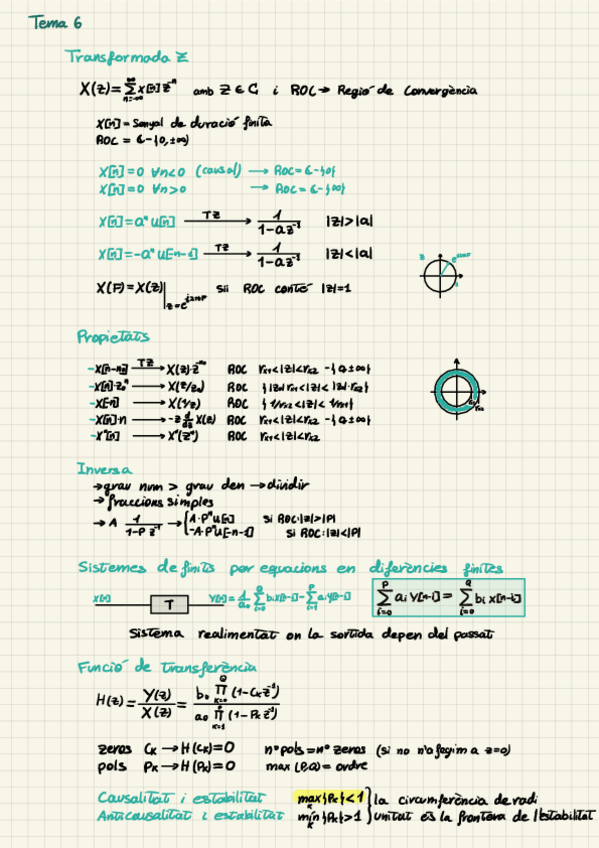 Tema 6
Transformada Z
X(z)=∑_{n=-∞}^{∞} x[n] z^{-n} amb z ∈ ℂ i ROC→ Regió de Convergència
x[n] = Senyal de duració finita
ROC = ℂ-{0,±∞}
x[n]=0 ∀n<0 (causal) → ROC=ℂ-{0}
x[n]=0 ∀n>0 → ROC=ℂ-{∞}
x[n]=aⁿu[n] TZ→ 1/(1-az⁻¹) |z|>|a|
x[n]=-aⁿu[-n-1] TZ→ 1/(1-az⁻¹) |z|<|a|
X(F)=X(z)|_{z=e^{j2πF}} sii ROC conté |z|=1
z e^{j2πF}
1
Propietats
-x[n-n₀] TZ→ X(z)·z^{-n₀} ROC r_{x1}<|z|<r_{x2} -{0,±∞}
-x[n]·z₀ⁿ → X(z/z₀) ROC {|z₀|r_{x1}<|z|<|z₀|·r_{x2}}
-x[-n] → X(1/z) ROC {1/r_{x2}<|z|<1/r_{x1}}
-x[n]·n → -z d/dz X(z) ROC r_{x1}<|z|<r_{x2} -{0,±∞}
-x*[n] → X*(z*) ROC r_{x1}<|z|<r_{x2}
r_{x1}
r_{x2}
Inversa
→grau num > grau den →dividir
→fraccions simples
→ A 1/(1-P z⁻¹) → {A·Pⁿu[n] si ROC:|z|>|P|
-A·Pⁿu[-n-1] si ROC:|z|<|P|
Sistemes definits per equacions en diferències finites
x[n] T y[n]=1/a₀ ∑_{i=0}^{Q} bᵢx[n-i]-∑_{i=1}^{P} aᵢy[n-i] ∑_{i=0}^{P} aᵢ y[n-i] = ∑_{i=0}^{Q} bᵢ x[n-i]
Sistema realimentat on la sortida depen del passat
Funció de transferència
H(z)= Y(z)/X(z) = b₀ ∏_{k=0}^{Q} (1-C_k z⁻¹) / a₀ ∏_{k=1}^{P} (1-P_k z⁻¹)
zeros C_k → H(C_k)=0 nº pols = nº zeros (si no n'afegim a z=0)
pols P_k → H(P_k)=0 max(P,Q) = ordre
Causalitat i estabilitat max_k{P_k}<1 } la circumferència de radi
Anticausalitat i estabilitat mín_k{P_k}>1 } unitat és la frontera de l'estabilitat